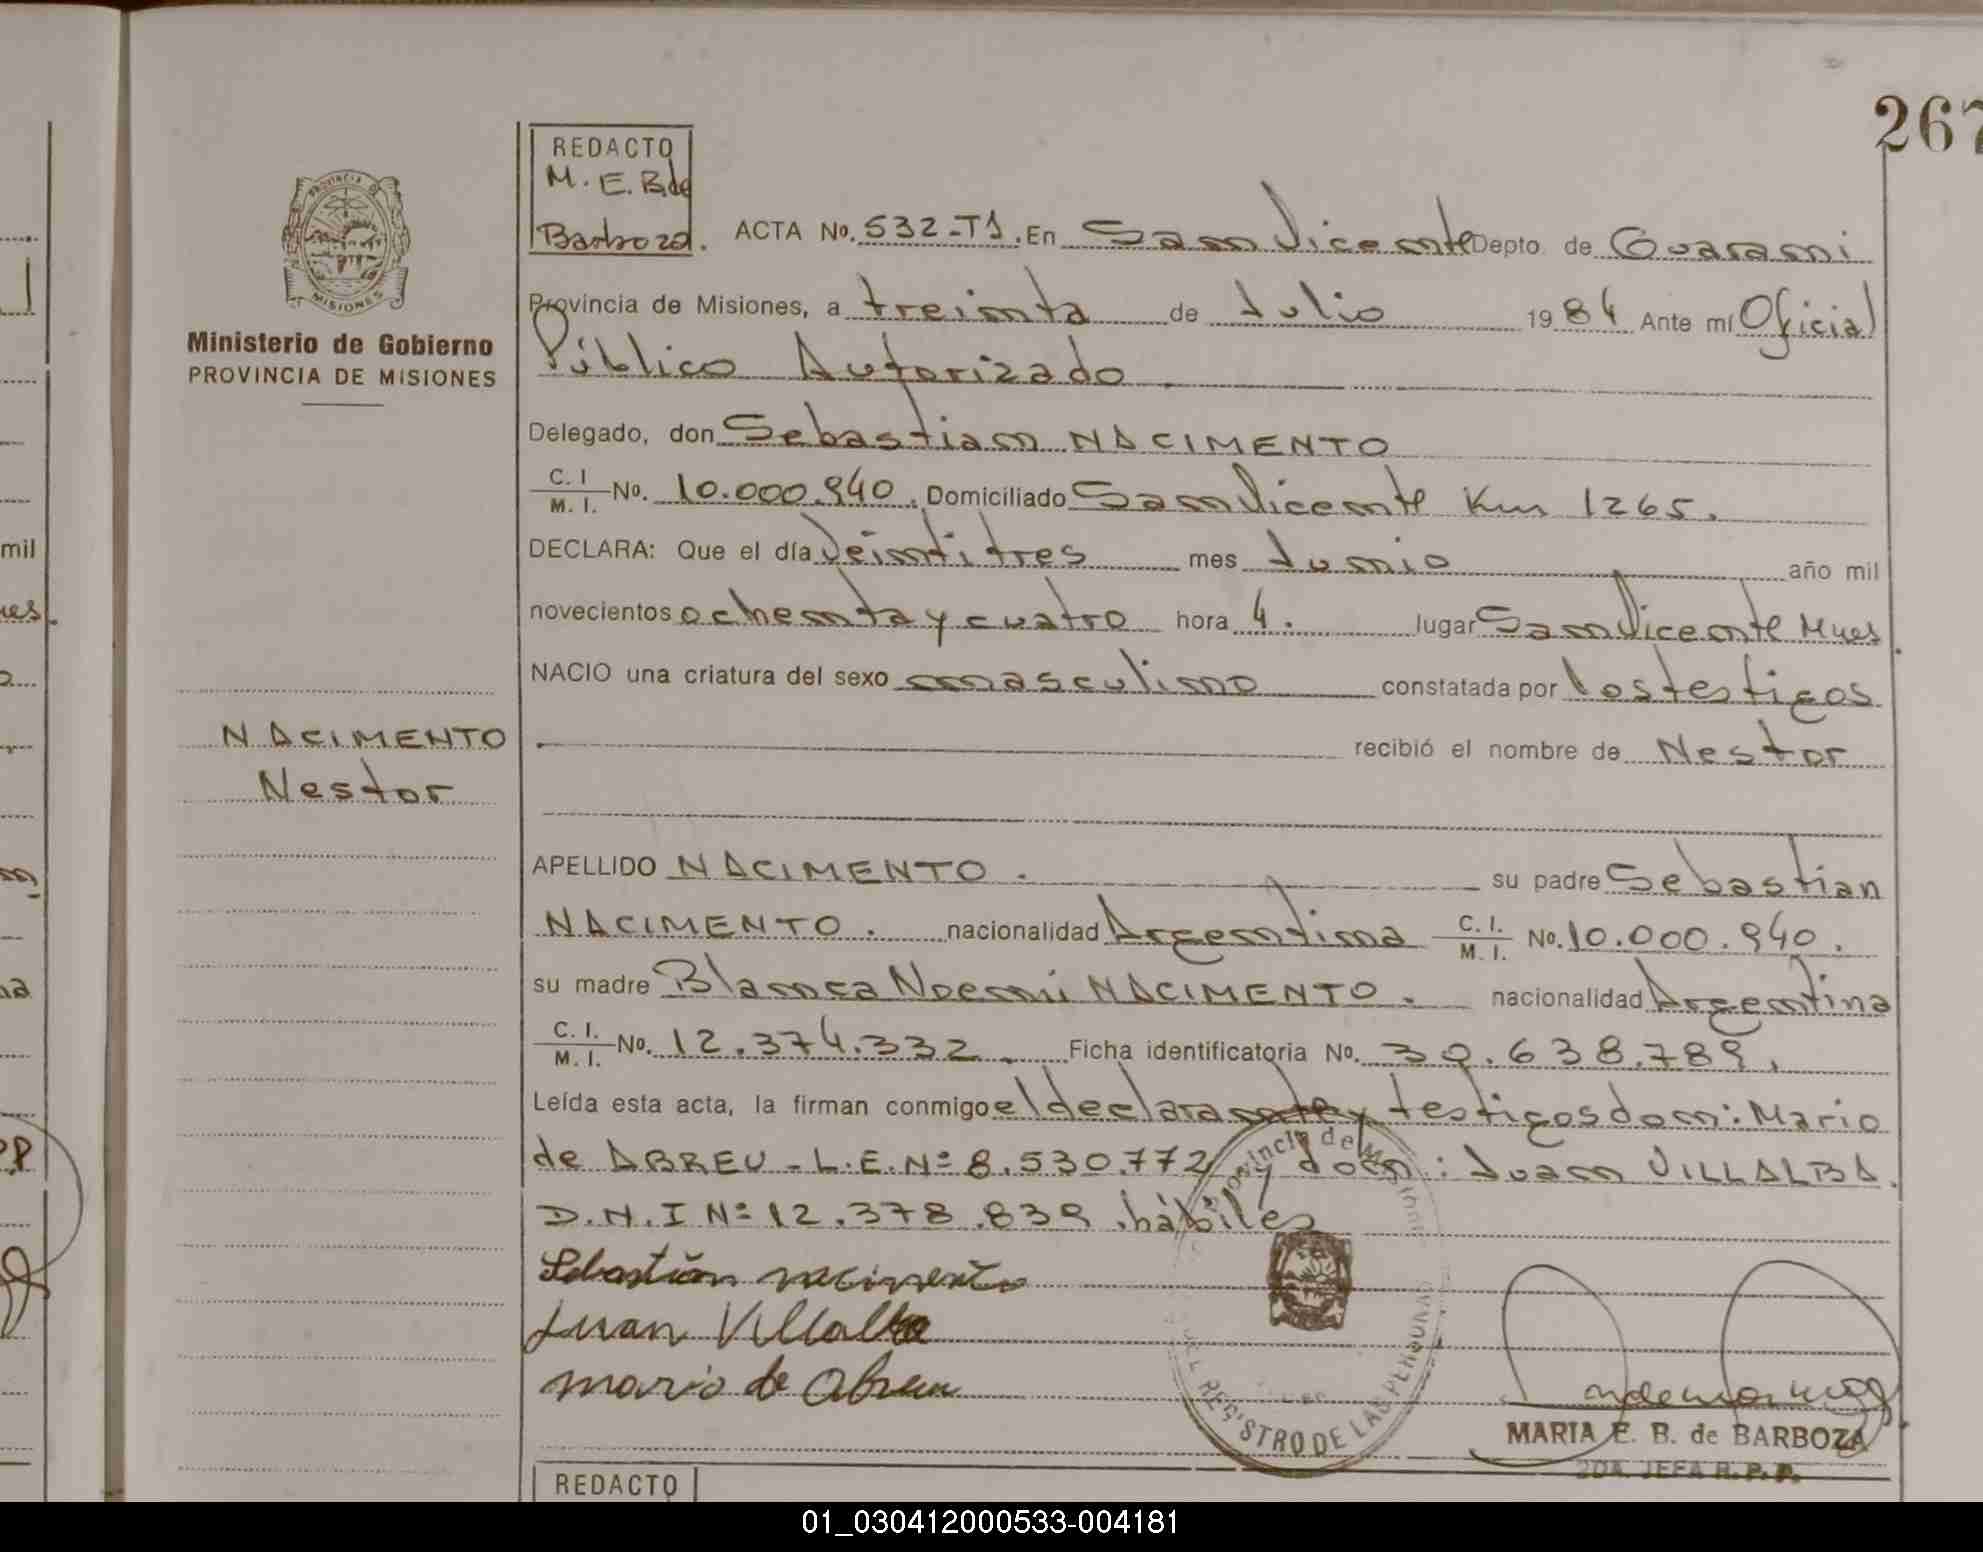 267
REDACTO
M. E. B. de
Barboza.
ACTA No. 532-T1. En San Vicente Depto. de Guaraní
PROVINCIA DE
MISIONES
Ministerio de Gobierno
PROVINCIA DE MISIONES
Provincia de Misiones, a treinta de Julio 1984 Ante mí Oficial
Público Autorizado
Delegado, don Sebastian NACIMENTO
C. I
M. I. No. 10.000.940. Domiciliado San Vicente Km 1265.
DECLARA: Que el día Veintitres mes Junio año mil
novecientos ochenta y cuatro hora 4. lugar San Vicente Mnes.
NACIO una criatura del sexo masculino constatada por los testigos
NACIMENTO recibió el nombre de Nestor
Nestor
APELLIDO NACIMENTO. su padre Sebastian
NACIMENTO. nacionalidad Argentina C. I. M. I. No. 10.000.940.
su madre Blanca Noemi NACIMENTO. nacionalidad Argentina
C. I. M. I. No. 12.374.332. Ficha identificatoria No. 30.638.789.
Leída esta acta, la firman conmigo el declarante y testigos don: Mario
de ABREU - L.E. Nº 8.530.772 y don: Juan VILLALBA.
D.N.I Nº 12.378.839. hábiles
Sebastián nacimento
Juan Villalba
mario de Abreu
Provincia de Misiones
REGISTRO DE LAS PERSONAS
MARIA E. B. de BARBOZA
2DA. JEFA R. P. P.
REDACTO
mil
01_030412000533-004181